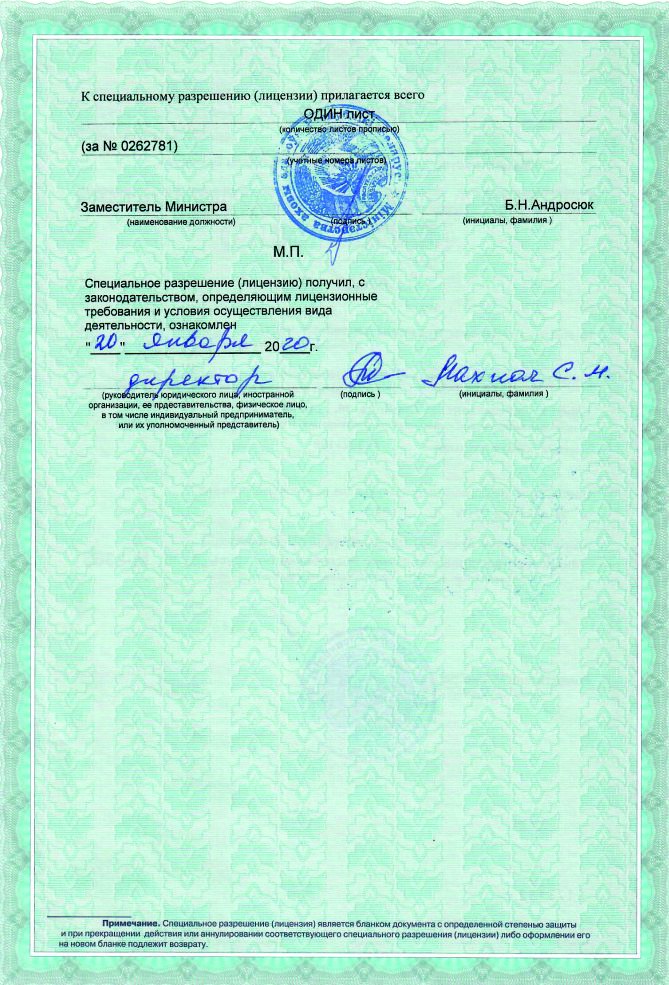 К специальному разрешению (лицензии) прилагается всего
ОДИН лист
(количество листов прописью)
(за № 0262781)
(учетные номера листов)
Заместитель Министра Б.Н.Андросюк
(наименование должности) (подпись ) (инициалы, фамилия )
М.П.
Специальное разрешение (лицензию) получил, с
законодательством, определяющим лицензионные
требования и условия осуществления вида
деятельности, ознакомлен
"20" января 2020г.
директор С. М.
(руководитель юридического лица, иностранной (подпись ) (инициалы, фамилия )
организации, ее прдеставительства, физическое лицо,
в том числе индивидуальный предприниматель,
или их уполномоченный представитель)
Примечание. Специальное разрешение (лицензия) является бланком документа с определенной степенью защиты
и при прекращении действия или аннулировании соответствующего специального разрешения (лицензии) либо оформлении его
на новом бланке подлежит возврату.